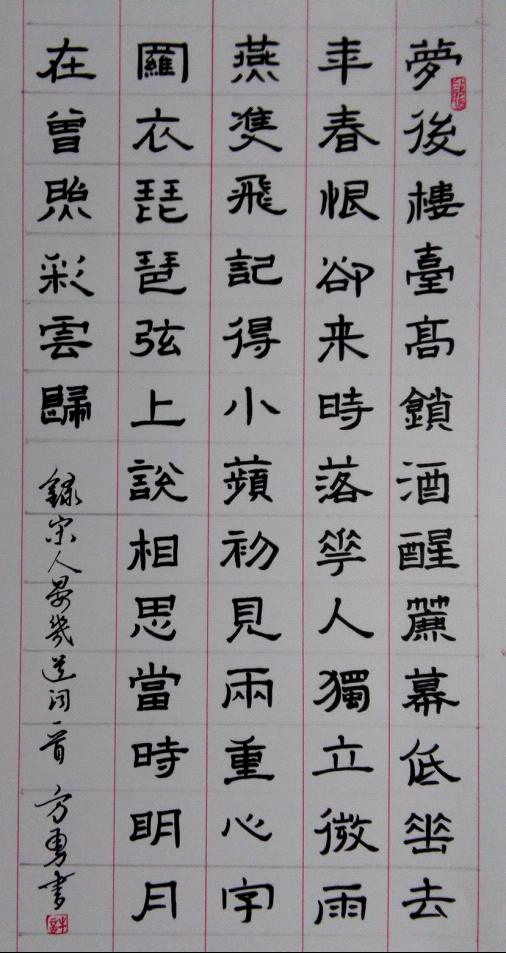 夢後樓臺高鎖酒醒簾幕低垂去
年春恨卻来時落花人獨立微雨
燕雙飛記得小蘋初見兩重心字
羅衣琵琶弦上說相思當時明月
在曾照彩雲歸 録宋人晏幾道词一首 方勇書